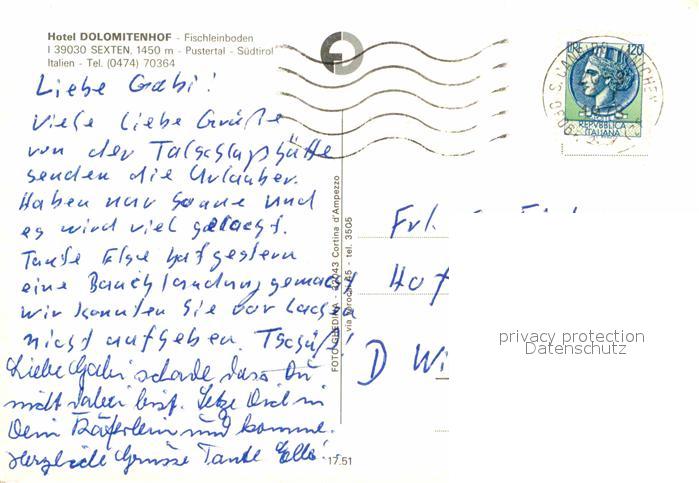 Hotel DOLOMITENHOF - Fischleinboden
I 39030 SEXTEN, 1450 m - Pustertal - Südtirol
Italien - Tel. (0474) 70364
Liebe Gabi!
Viele liebe Grüße
von der Talschlußhütte
senden die Urlauber.
Haben nur Sonne und
es wird viel gelacht.
Tante Else hat gestern
eine Bauchlandung gemacht
wir konnten sie vor Lachen
nicht aufheben. Tschüß!
Liebe Gabi schade dass Du
nicht dabei bist. Setze Dich in
Dein Käferlein und komme.
Herzliche Grüsse Tante Elli
FOTO GHEDINA - 32043 Cortina d'Ampezzo
tel. 3505
17.51
LIRE 120
REPVBBLICA
ITALIANA
Frl.
D Wi
privacy protection
Datenschutz